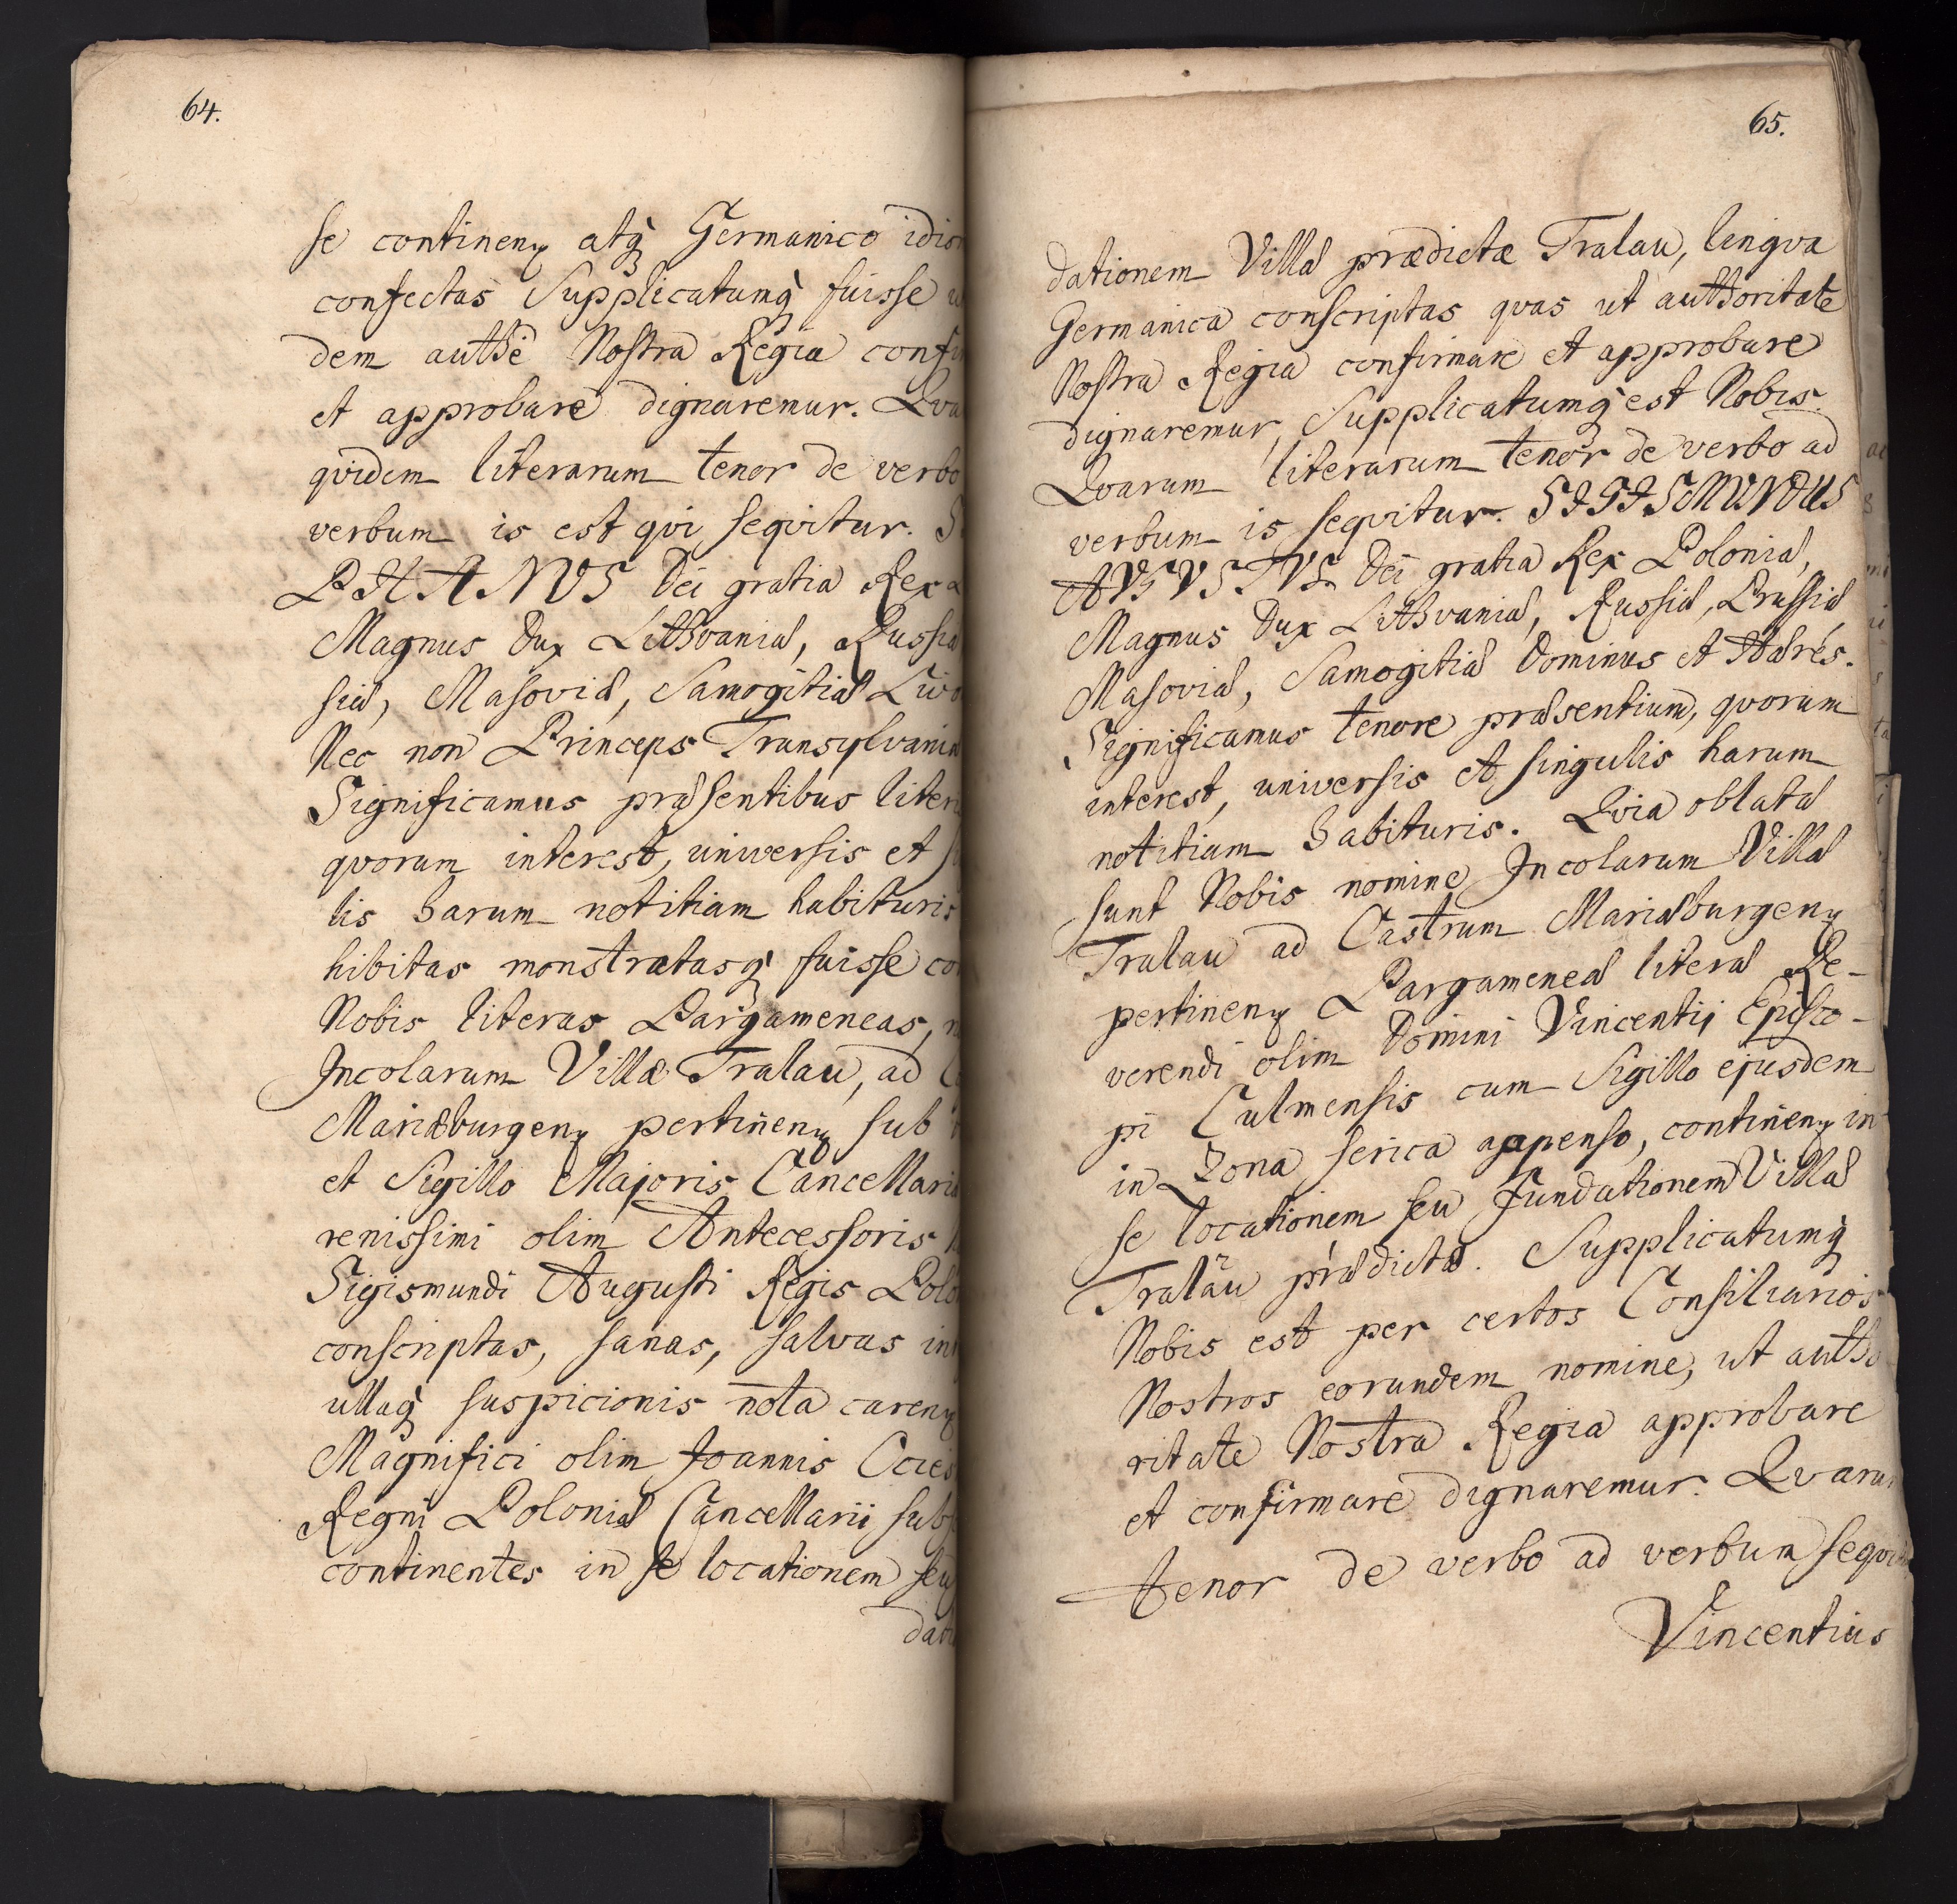 64.
se continenꝝ atq̃ Germanico
confectas Supplicatumq̃ fuisse
dem authẽ Nostra Regia
et approbare dignaremur.
qvidem literarum tenor de verbo
verbum is est qvi seqvitur.
PHANVS Dei gratia Rex
Magnus Dux Lithvaniæ, Russiæ
siæ, Masoviæ, Samogitiæ
Nec non Princeps Transylvaniæ
Significamus præsentibus
qvorum interest, universis et
lis harum notitiam habituris
hibitas monstratasq̃ fuisse
Nobis literas Pargameneas,
Incolarum Villæ Tralau, ad
Mariæburgenꝝ pertinenꝝ sub
et Sigillo Majoris Cancellariæ
renissimi olim Antecessoris
Sigismundi Augusti Regis
conscriptas, sanas, salvas
ullaq̃ suspicionis nota carenꝝ
Magnifici olim Joannis
Regni Poloniæ Cancellarii
continentes in se locationem seu
65.
dationem Villæ prædictæ Tralau, lingva
Germanica conscriptas qvas ut authoritate
Nostra Regia confirmare et approbare
dignaremur, Supplicatumq̃ est Nobis.
Qvarum literarum tenor de verbo ad
verbum is seqvitur. SIGISMUNDUS
AVGVSTVS Dei gratia Rex Poloniæ,
Magnus Dux Lithvaniæ, Russiæ, Prussiæ
Masoviæ, Samogitiæ Dominus et Hæres.
Significamus tenore præsentium, qvorum
interest, universis et singulis harum
notitiam habituris. Qvia oblatæ
sunt Nobis nomine Incolarum Villæ
Tralau ad Castrum Mariæburgenꝝ
pertinenꝝ Pargameneæ literæ Re-
verendi olim Domini Vincentij Episco-
pi Culmensis cum Sigillo ejusdem
in Zona serica appenso, continenꝝ in
se locationem seu Fundationem Villæ
Tralau prædictæ. Supplicatumq̃
Nobis est per certos Consiliarios
Nostros eorundem nomine, ut autho
ritate Nostra Regia approbare
et confirmare dignaremur. Qvarum
tenor de verbo ad verbum
Vincentius